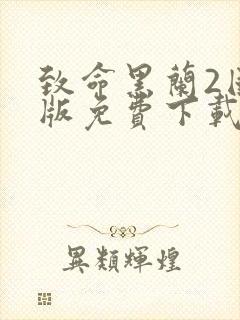 致命黑蘭2國
版免費下載
異類輝煌